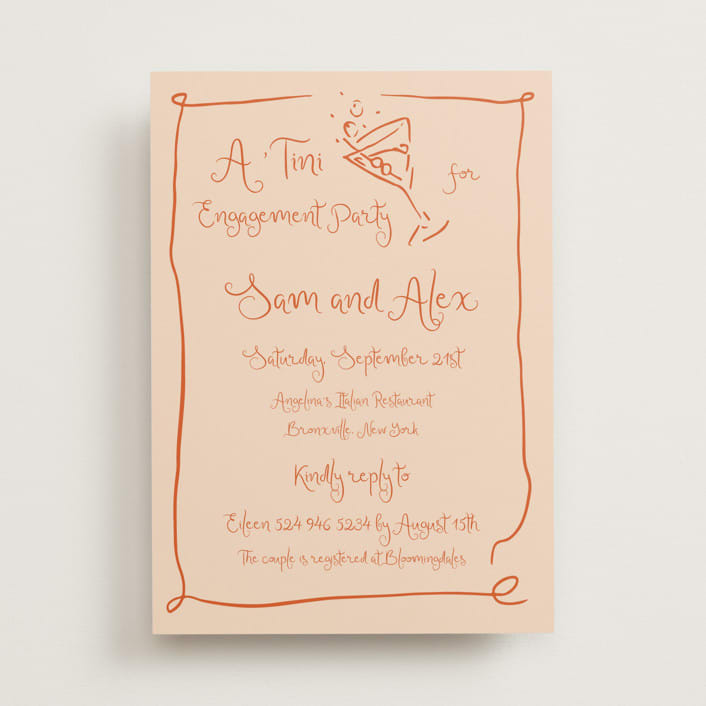 A 'Tini for
Engagement Party
Sam and Alex
Saturday, September 21st
Angelina's Italian Restaurant
Bronxville, New York
Kindly reply to
Eileen 524 946 5234 by August 15th
The couple is registered at Bloomingdales